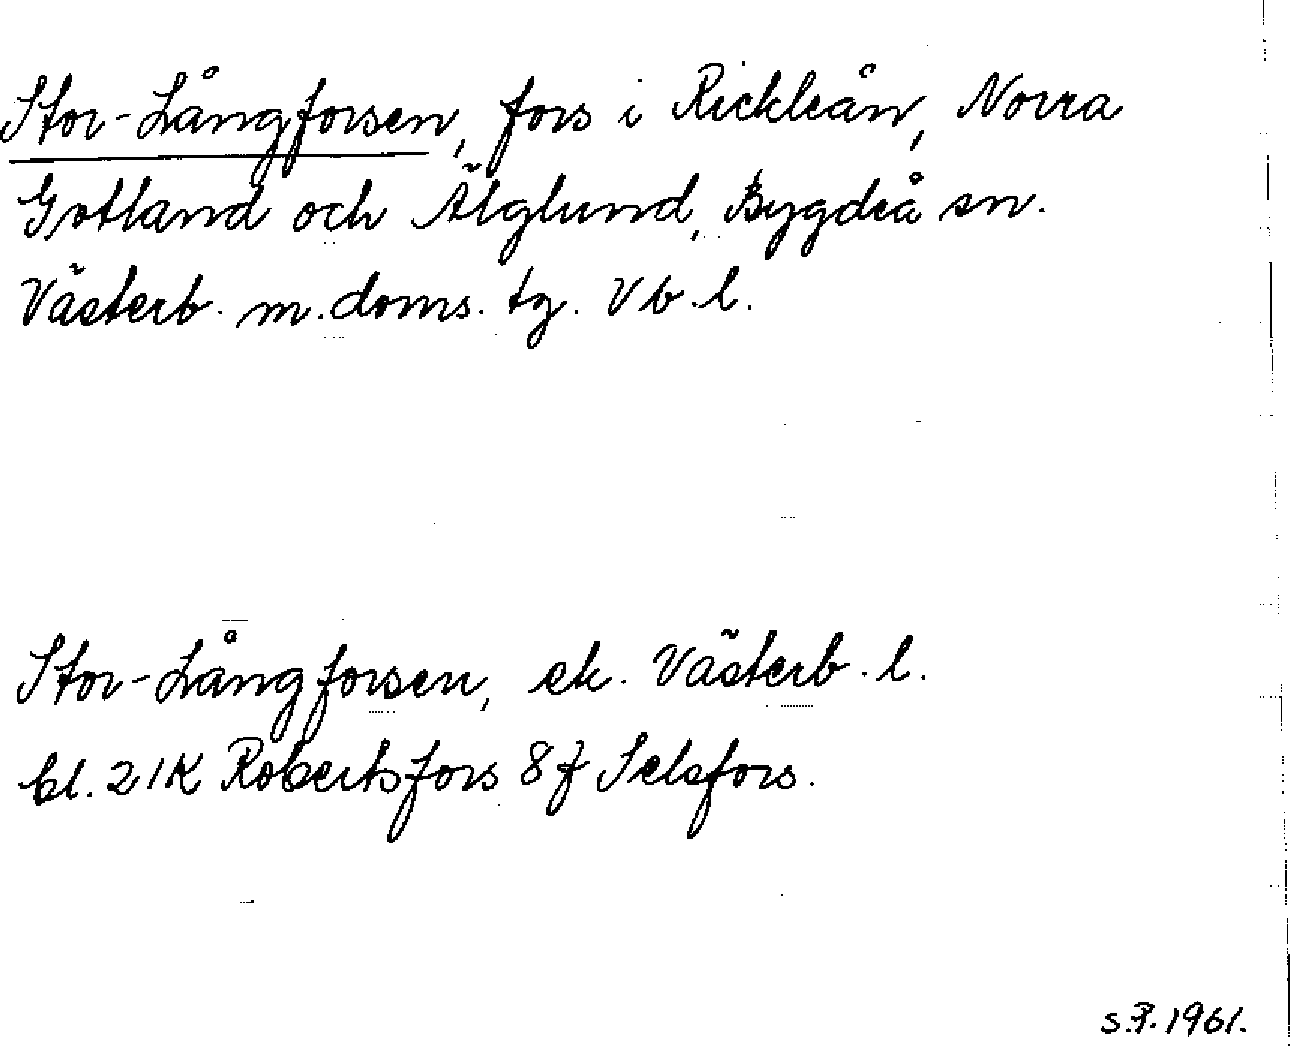 Stor-Långforsen, fors i Rickleån, Norra
Gotland och Älglund, Bygdeå sn.
Västerb. m. doms. tg. Vb. l.
Stor-Långforsen, ek. Västerb. l.
bl. 21K Robertsfors 8f Selsfors.
S.P. 1961.